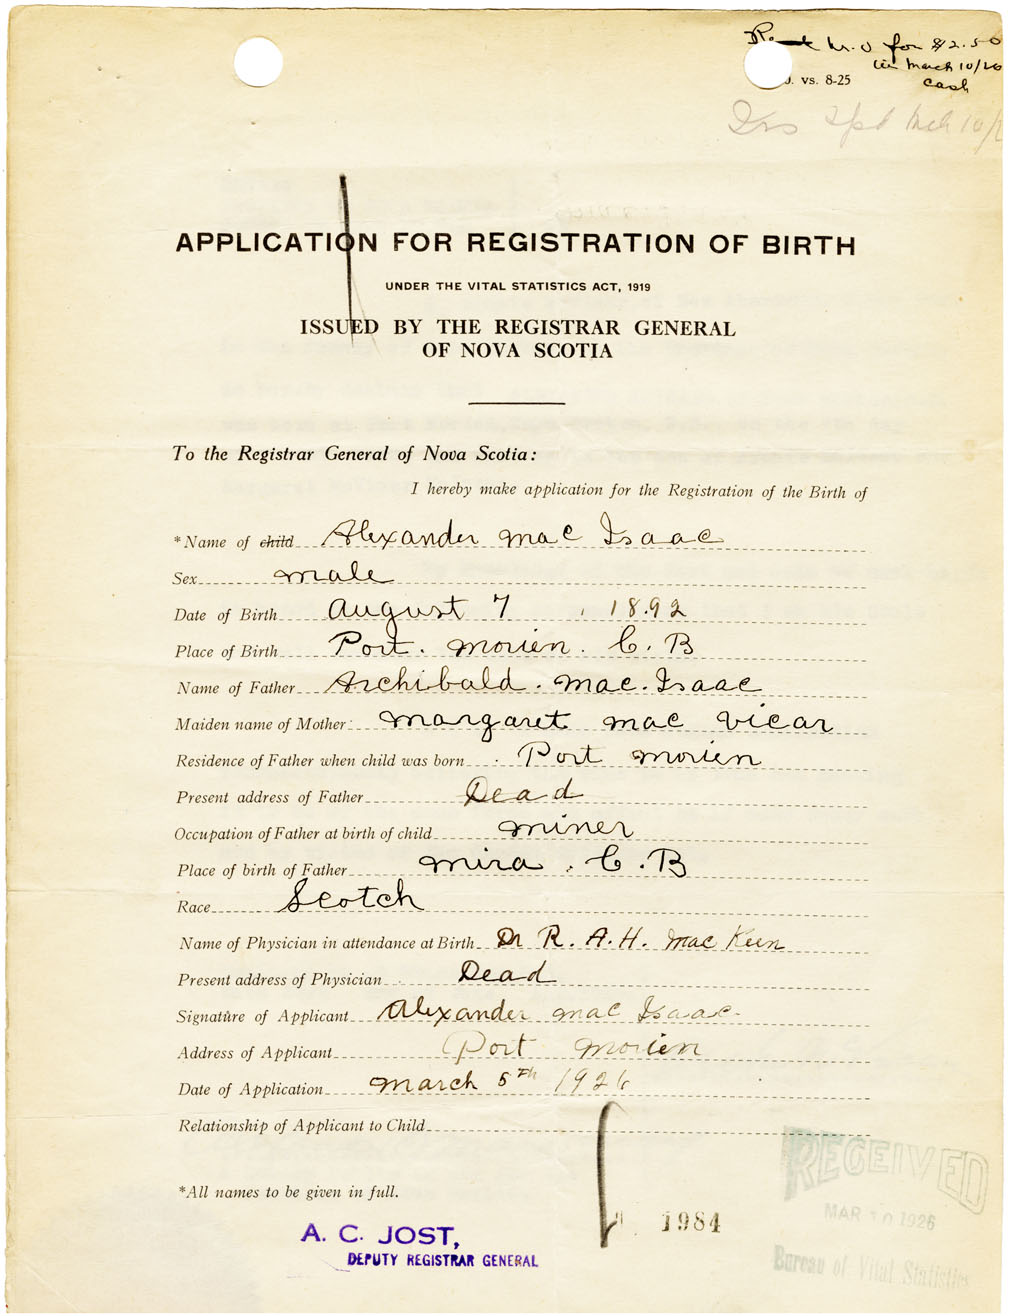 for $2.50
in March 10/26
vs. 8-25
cash
APPLICATION FOR REGISTRATION OF BIRTH
UNDER THE VITAL STATISTICS ACT, 1919
ISSUED BY THE REGISTRAR GENERAL
OF NOVA SCOTIA
To the Registrar General of Nova Scotia:
I hereby make application for the Registration of the Birth of
*Name of child Alexander Mac Isaac
Sex male
Date of Birth August 7 1892
Place of Birth Port. Morien. C. B
Name of Father Archibald. Mac. Isaac
Maiden name of Mother: Margaret Mac Vicar
Residence of Father when child was born Port Morien
Present address of Father Dead
Occupation of Father at birth of child miner
Place of birth of Father Mira. C. B
Race Scotch
Name of Physician in attendance at Birth Dr R. A. H. Mac Keen
Present address of Physician Dead
Signature of Applicant Alexander Mac Isaac.
Address of Applicant Port Morien
Date of Application March 5th 1926
Relationship of Applicant to Child
RECEIVED
*All names to be given in full.
MAR 10 1926
1984
A. C. JOST,
DEPUTY REGISTRAR GENERAL
Bureau of Vital Statistics